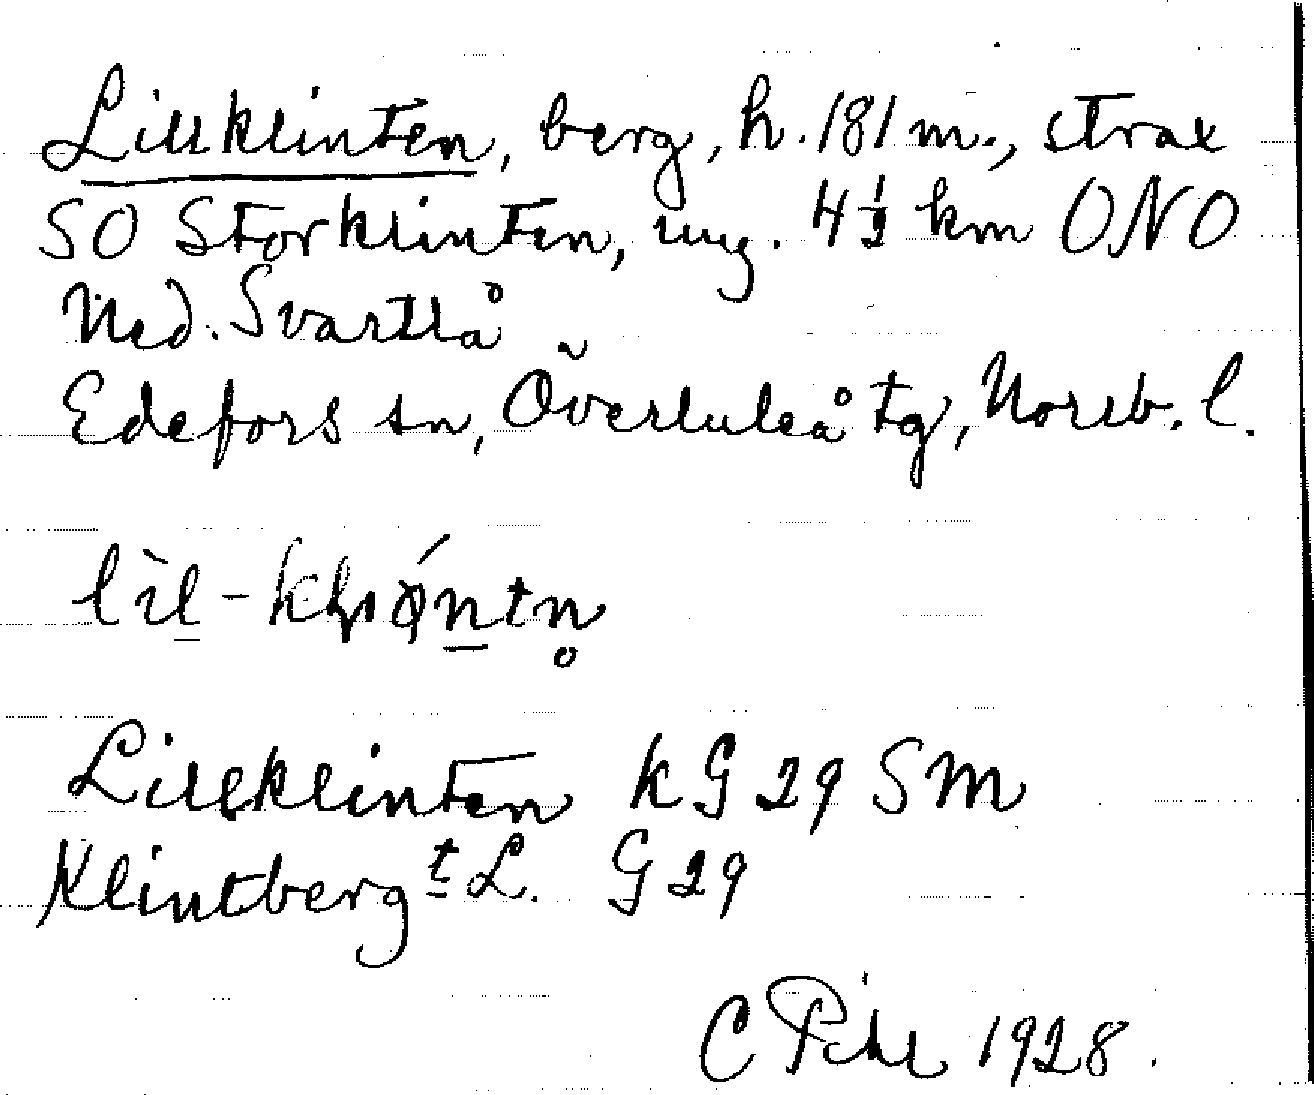 Lillklinten, berg, h. 181 m., strax
SO Storklinten, ung. 4½ km ONO
Ned. Svartlå
Edefors sn, Överluleå tg, Norrb. l.
Lillklinten kG 29 SM
Klintberg t L. G 29
C Pihl 1928.